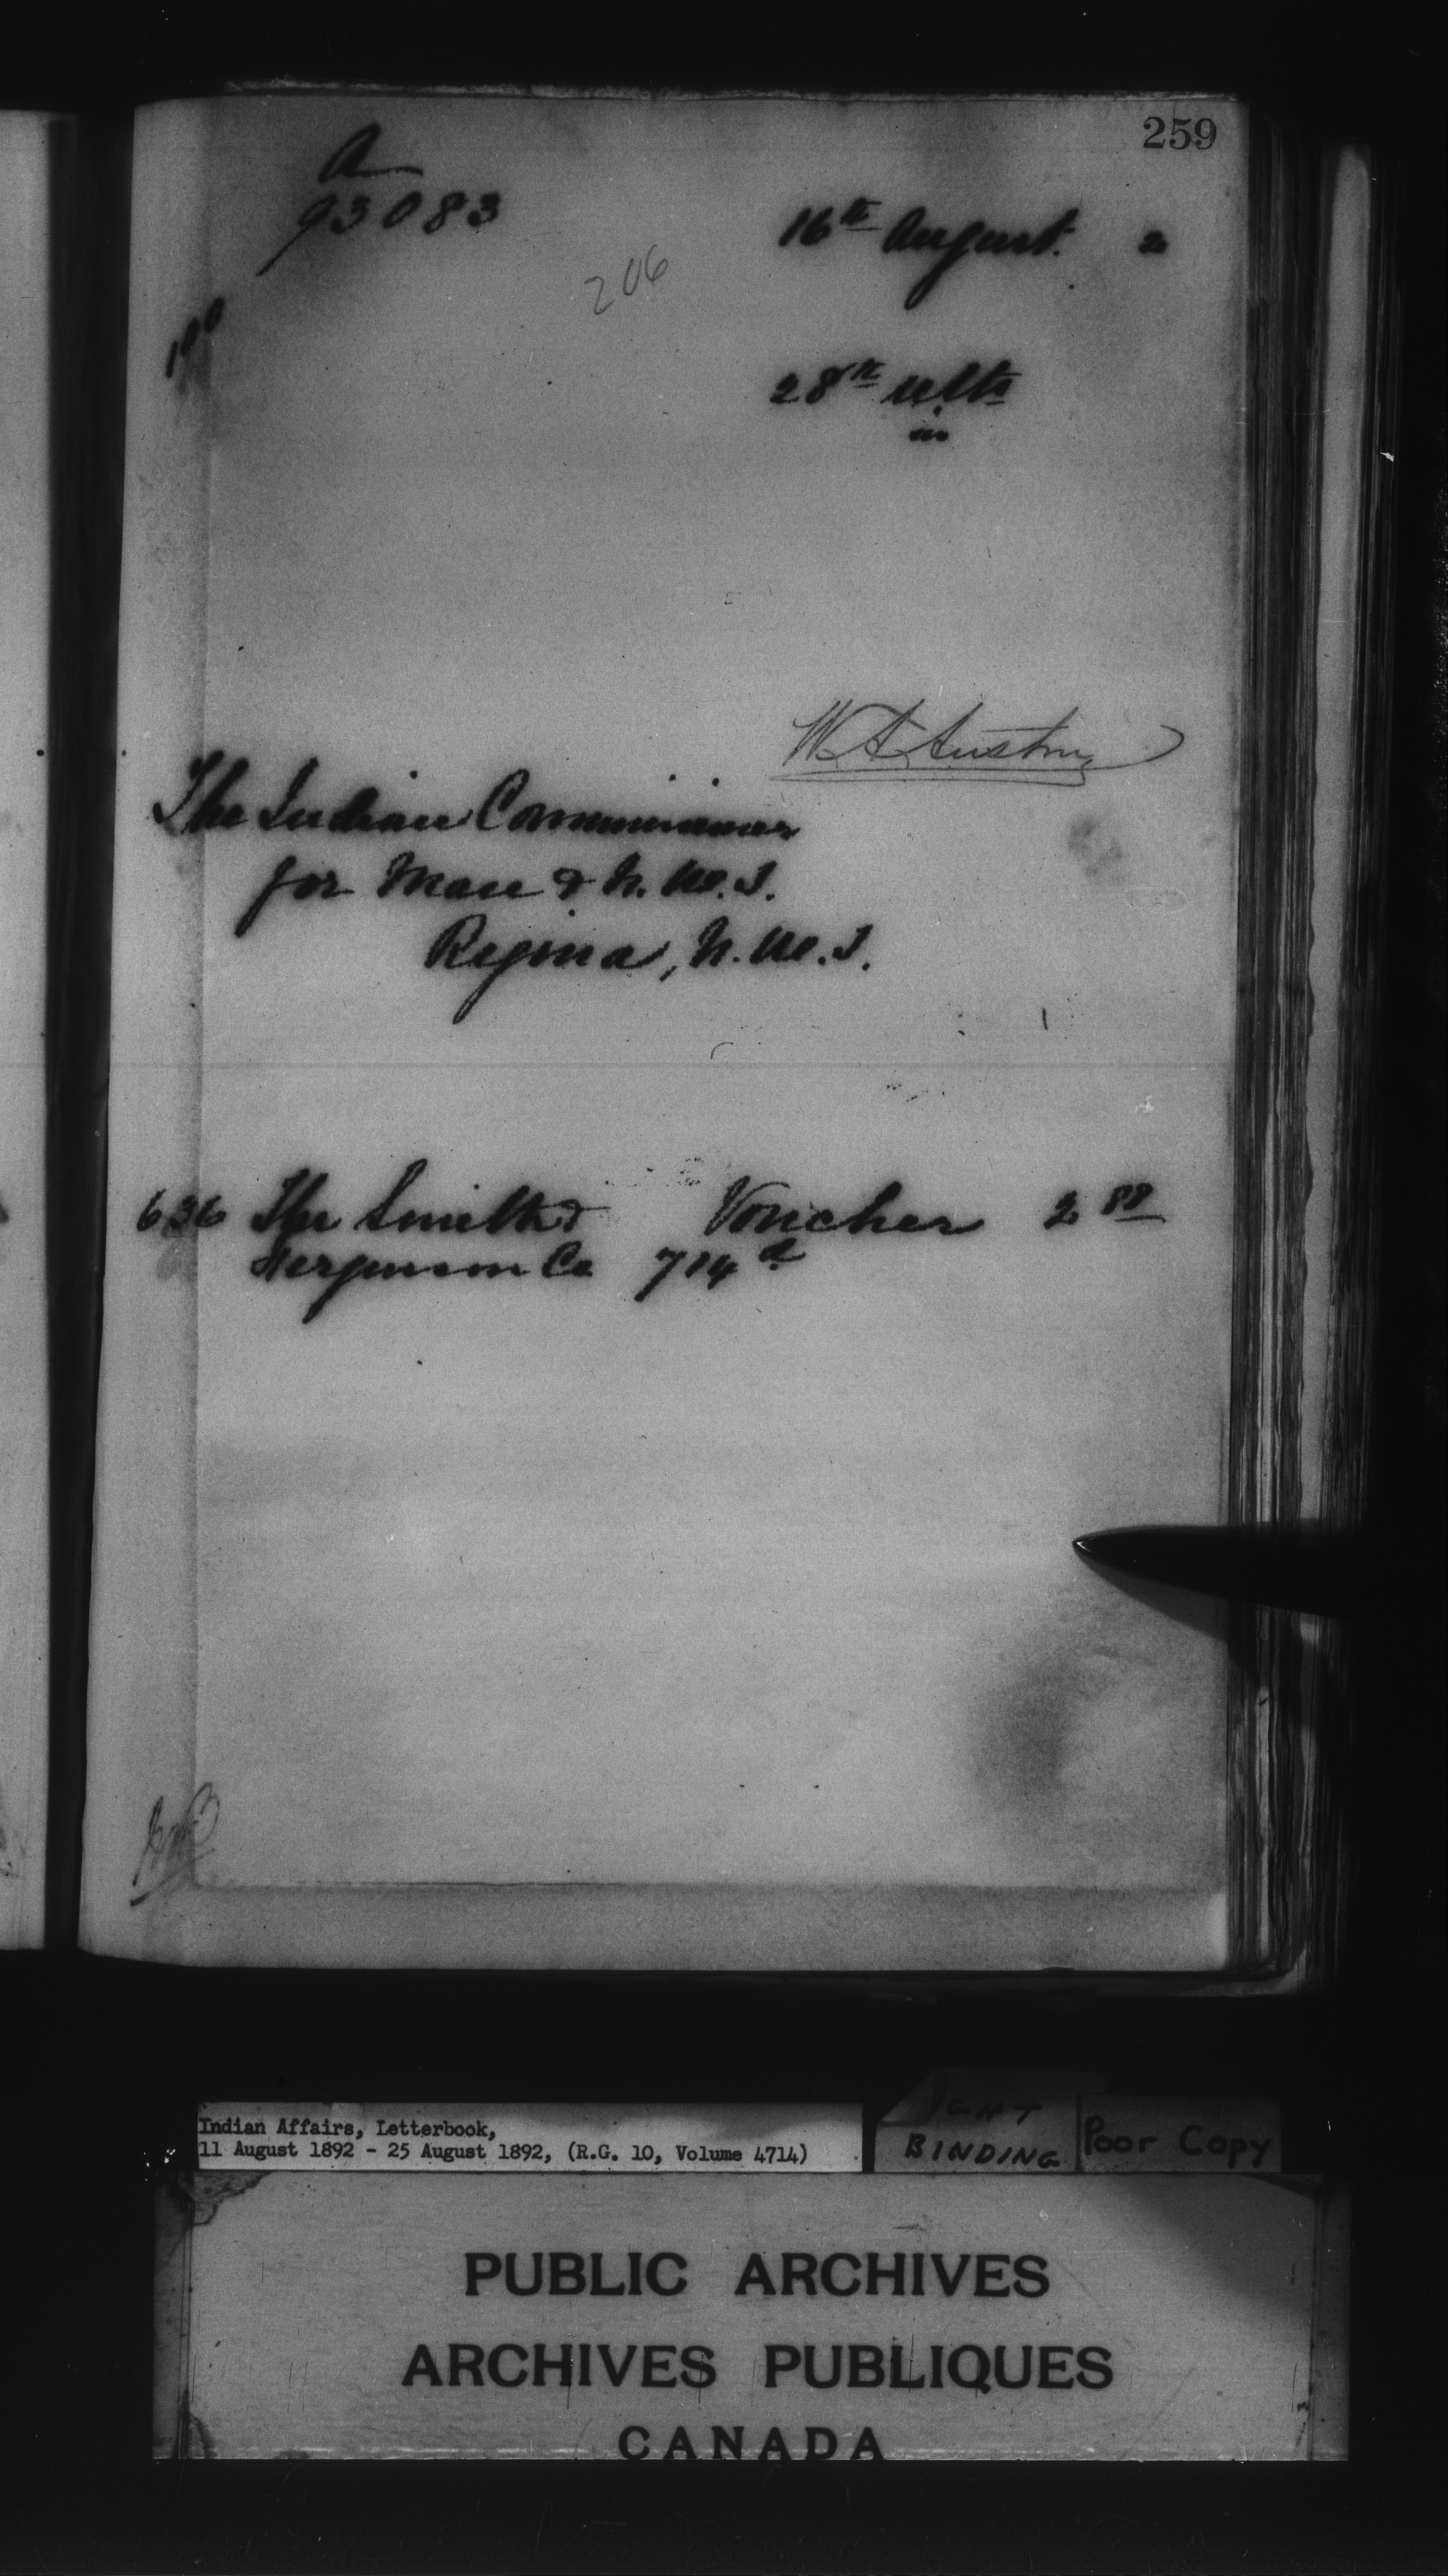 259
A
93083
16th August. 2
206
100
28th ulto
in
W A Austin
The Indian Commissioner
for Man & N. W. T.
Regina, N. W. T.
636 The Smith & Voucher 2 88
Ferguson Co 714 d
Indian Affairs, Letterbook,
11 August 1892 - 25 August 1892, (R.G. 10, Volume 4714)
BINDING
Poor Copy
PUBLIC ARCHIVES
ARCHIVES PUBLIQUES
CANADA